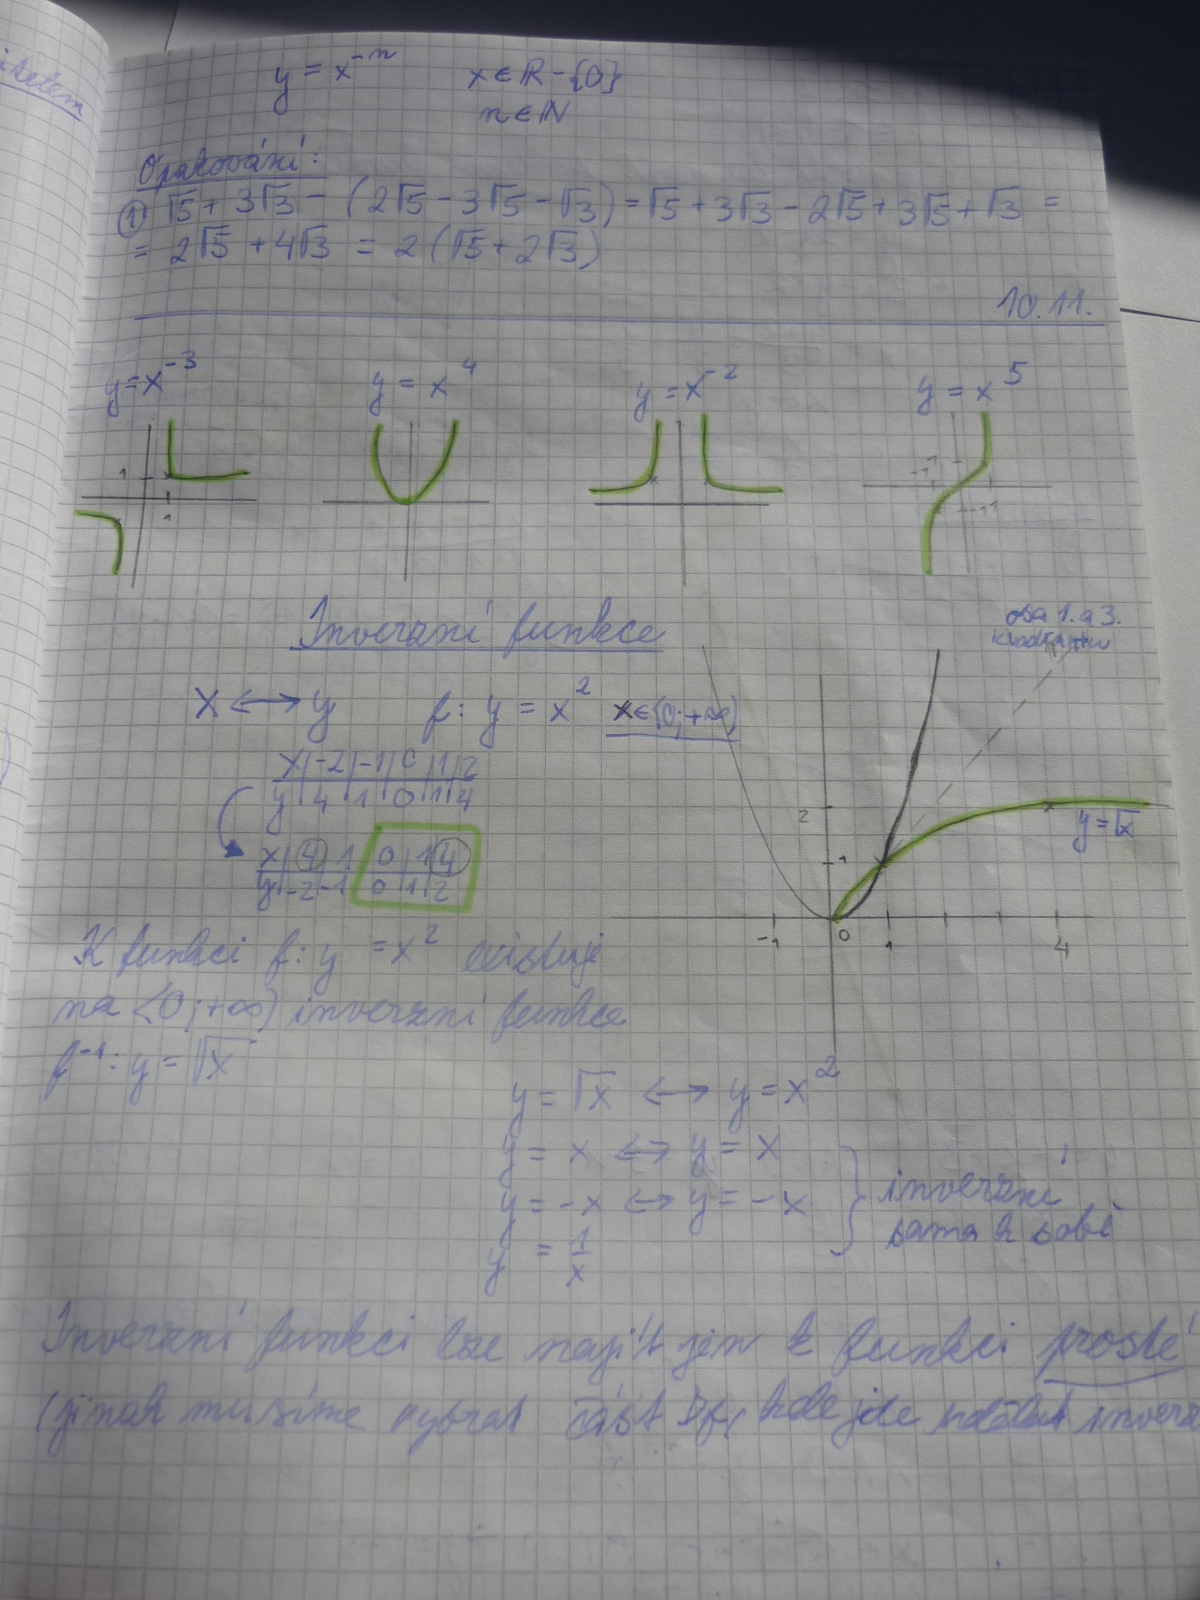 y = x⁻ⁿ x ∈ R - {0}
n ∈ N
Opakování:
① √5 + 3√3 - (2√5 - 3√5 - √3) = √5 + 3√3 - 2√5 + 3√5 + √3 =
= 2√5 + 4√3 = 2(√5 + 2√3)
10.11.
y = x⁻³ y = x⁴ y = x⁻² y = x⁵
1
1
-1 1
-1
Inverzní funkce
osa 1. a 3.
kvadrantu
x ↔ y f: y = x² x ∈ ⟨0; +∞)
x | -2 | -1 | 0 | 1 | 2
y | 4 | 1 | 0 | 1 | 4
x | 4 | 1 | 0 | 1 | 4
y | -2 | -1 | 0 | 1 | 2
2
1
y = √x
-1 0 1 4
K funkci f: y = x² existuje
na ⟨0; +∞) inverzní funkce
f⁻¹: y = √x
y = √x ↔ y = x²
y = x ↔ y = x
y = -x ↔ y = -x
y = 1/x
inverzní
sama k sobě
Inverzní funkci lze najít jen k funkci prosté
(jinak musíme vybrat část Df, kde jde udělat inverz